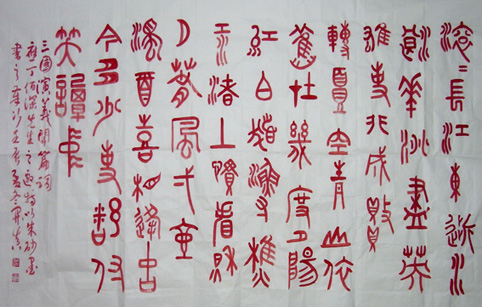 滚〻長江東逝水
浪花淘盡英
雄是非成敗
轉頭空青山依
舊在幾度夕陽
紅白髮漁樵
江渚上慣看秋
月春風弌壺
濁酒喜相逢古
今多少事都付
笑譚中
三國演義開篇詞
先生之 特以朱砂墨
書之